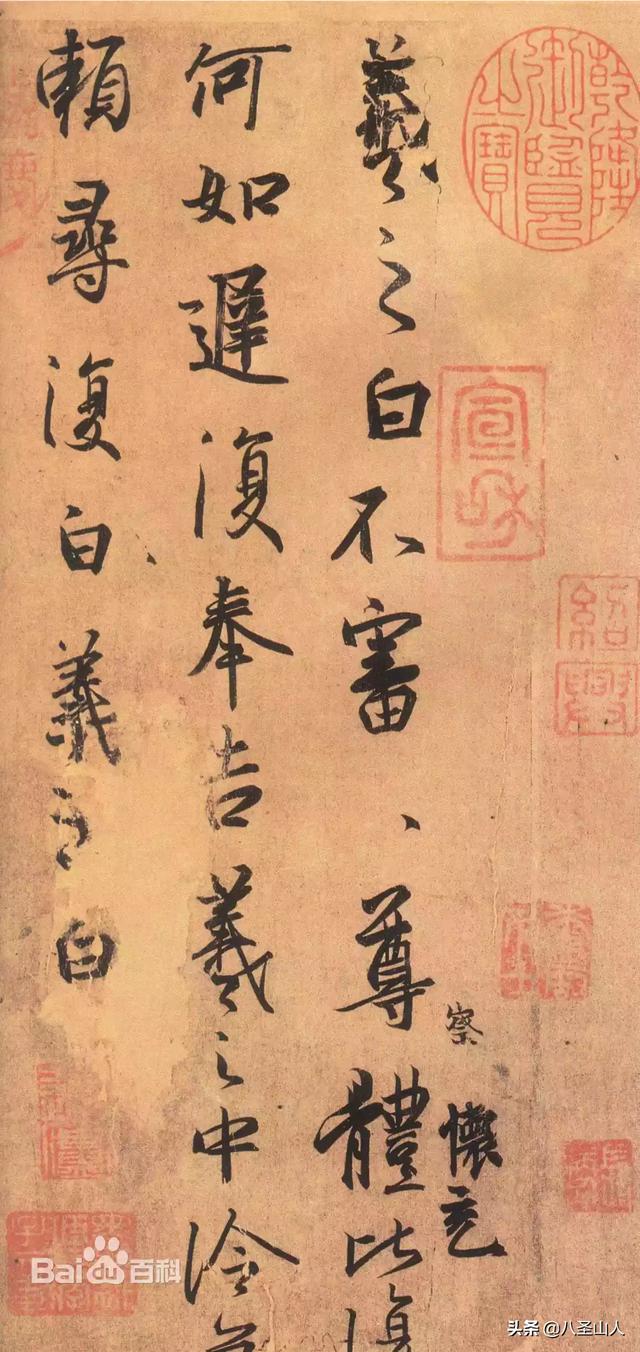 乾隆御覽之寶
宣和
紹興
察
懷充
羲之白不審、尊體比復
何如遲復奉告羲之中冷無
賴尋復白羲之白
Bai百科
头条 @八圣山人